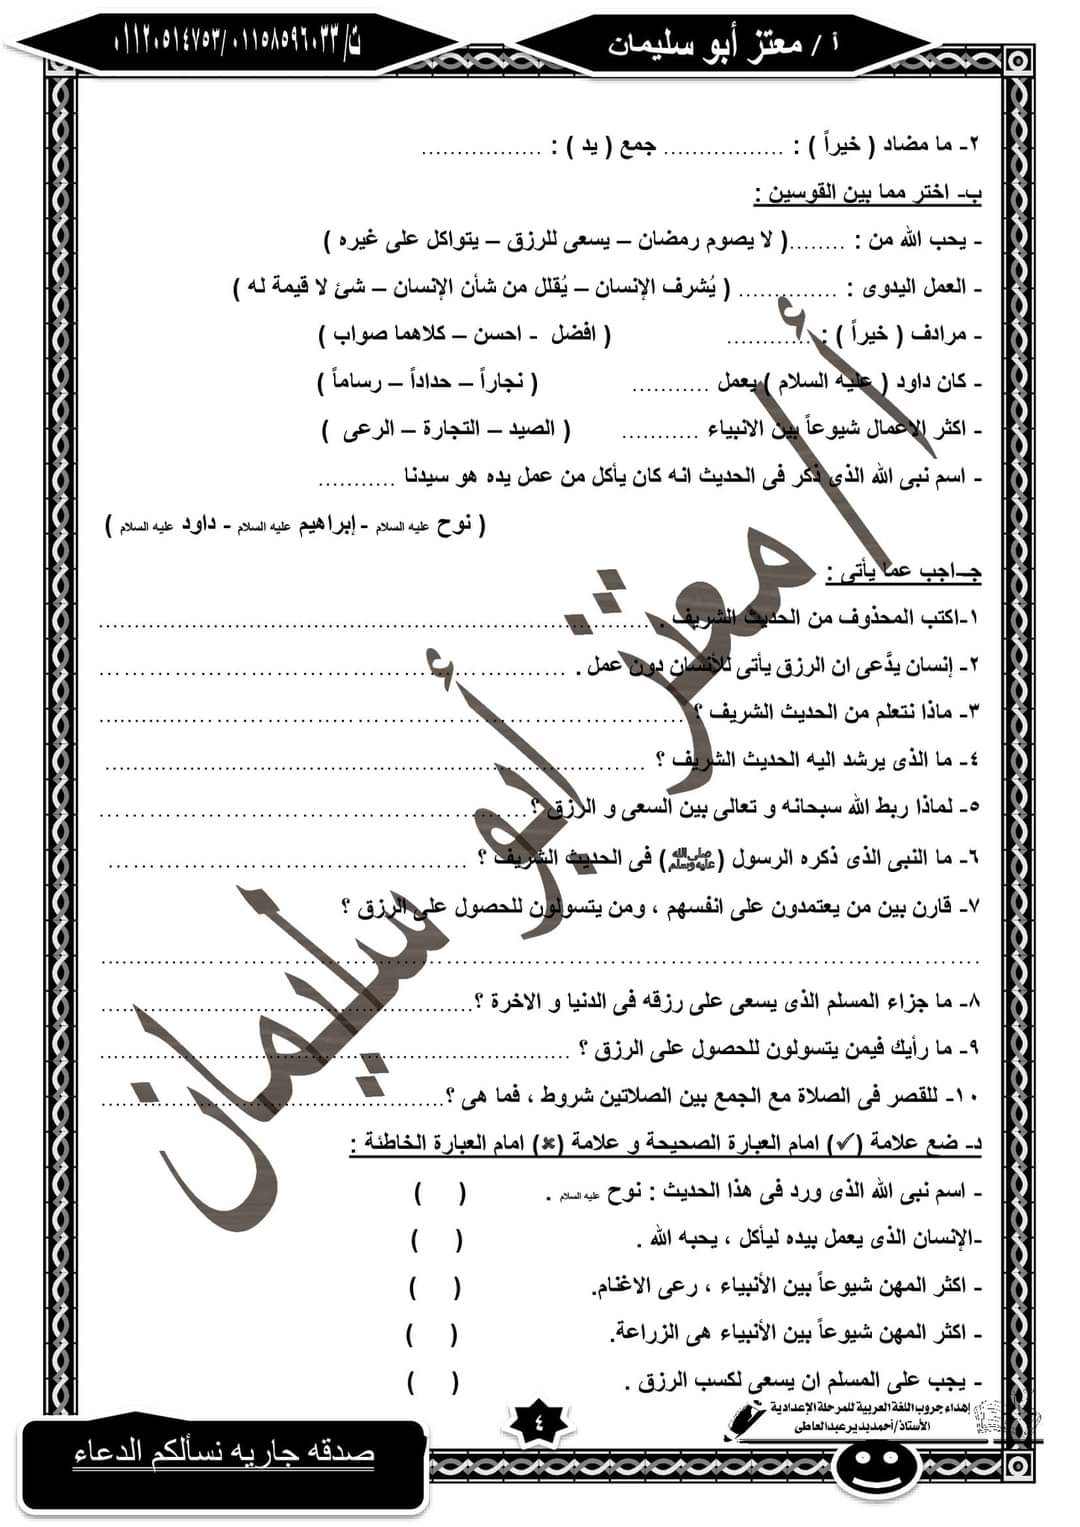 أ / معتز أبو سليمان
ت/ ٠١١٥٨٥٩٦٠٣٣ /٠١١٢٠٥١٤٧٥٣
٢- ما مضاد ( خيراً ) : ................. جمع ( يد ) : .................
ب- اختر مما بين القوسين :
- يحب الله من : ........( لا يصوم رمضان – يسعى للرزق – يتواكل على غيره )
- العمل اليدوى : ............. ( يُشرف الإنسان – يُقلل من شأن الإنسان – شئ لا قيمة له )
- مرادف ( خيراً ) : ............ ( افضل - احسن – كلاهما صواب )
- كان داود ( عليه السلام ) يعمل ........... ( نجاراً – حداداً – رساماً )
- اكثر الاعمال شيوعاً بين الانبياء ........... ( الصيد – التجارة – الرعى )
- اسم نبى الله الذى ذكر فى الحديث انه كان يأكل من عمل يده هو سيدنا ...........
( نوح عليه السلام - إبراهيم عليه السلام - داود عليه السلام )
جـ-اجب عما يأتى :
١-اكتب المحذوف من الحديث الشريف . ........................
٢- إنسان يدَّعى ان الرزق يأتى للأنسان دون عمل . ........................
٣- ماذا نتعلم من الحديث الشريف ؟ ........................
٤- ما الذى يرشد اليه الحديث الشريف ؟ ........................
٥- لماذا ربط الله سبحانه و تعالى بين السعى و الرزق ؟ ........................
٦- ما النبى الذى ذكره الرسول (صلى الله عليه وسلم) فى الحديث الشريف ؟ ........................
٧- قارن بين من يعتمدون على انفسهم ، ومن يتسولون للحصول على الرزق ؟
........................
٨- ما جزاء المسلم الذى يسعى على رزقه فى الدنيا و الاخرة ؟........................
٩- ما رأيك فيمن يتسولون للحصول على الرزق ؟ ........................
١٠- للقصر فى الصلاة مع الجمع بين الصلاتين شروط ، فما هى ؟........................
د- ضع علامة (✓) امام العبارة الصحيحة و علامة (✖) امام العبارة الخاطئة :
- اسم نبى الله الذى ورد فى هذا الحديث : نوح عليه السلام . ( )
-الإنسان الذى يعمل بيده ليأكل ، يحبه الله . ( )
- اكثر المهن شيوعاً بين الأنبياء ، رعى الاغنام. ( )
- اكثر المهن شيوعاً بين الأنبياء هى الزراعة. ( )
- يجب على المسلم ان يسعى لكسب الرزق . ( )
أ / معتز أبو سليمان
إهداء جروب اللغة العربية للمرحلة الإعدادية
الأستاذ/ أحمد بدير عبدالعاطى
٤
صدقه جاريه نسألكم الدعاء